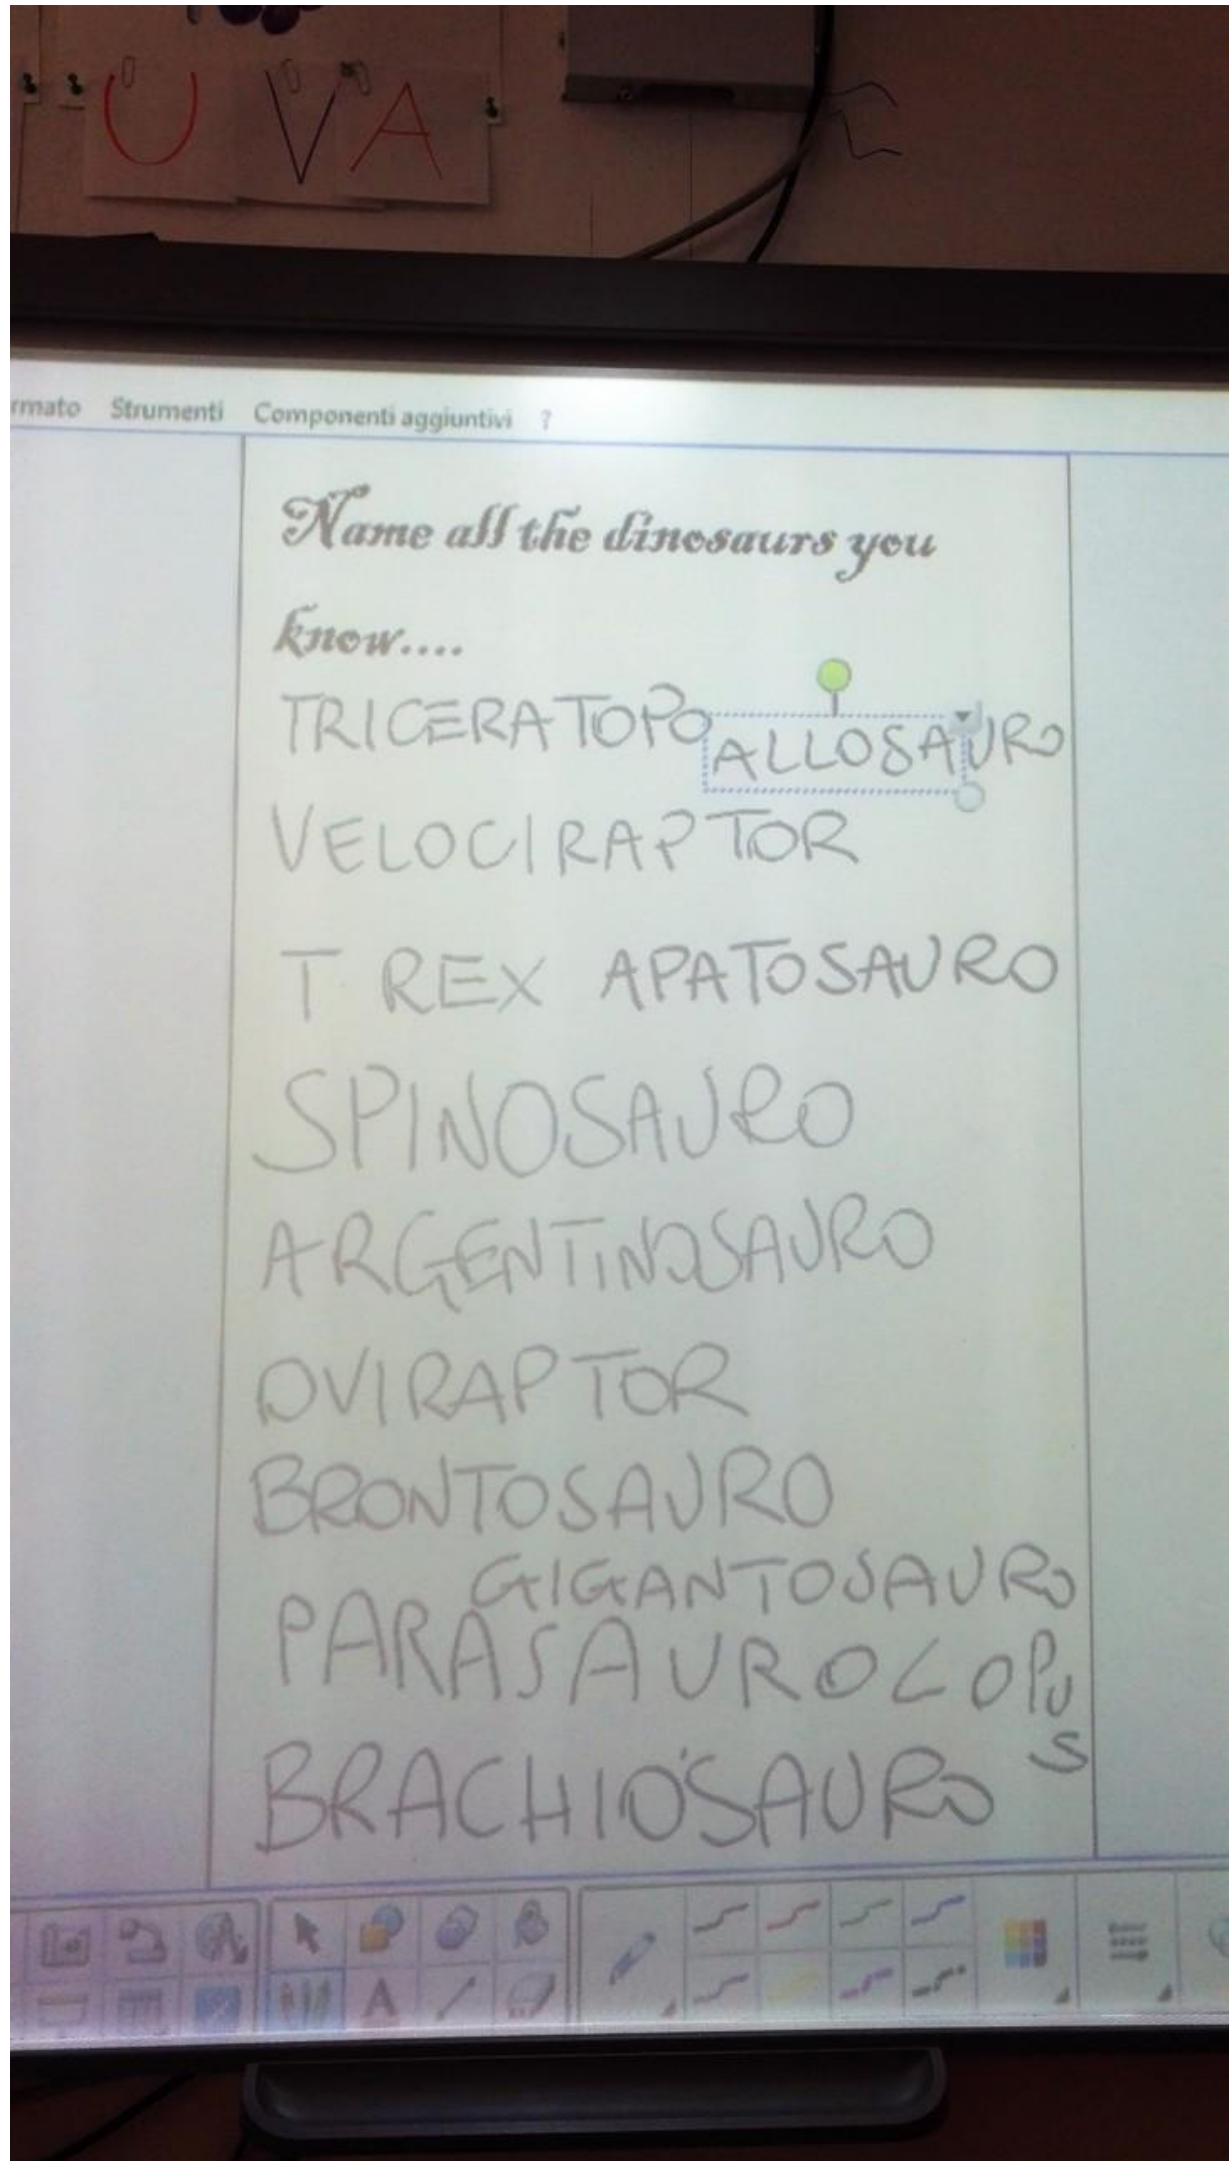 U V A
rmato Strumenti Componenti aggiuntivi ?
Name all the dinosaurs you
know....
TRICERATOPO ALLOSAURO
VELOCIRAPTOR
T REX APATOSAURO
SPINOSAURO
ARGENTINOSAURO
OVIRAPTOR
BRONTOSAURO
GIGANTOSAURO
PARASAUROLOPUS
BRACHIOSAURO
A